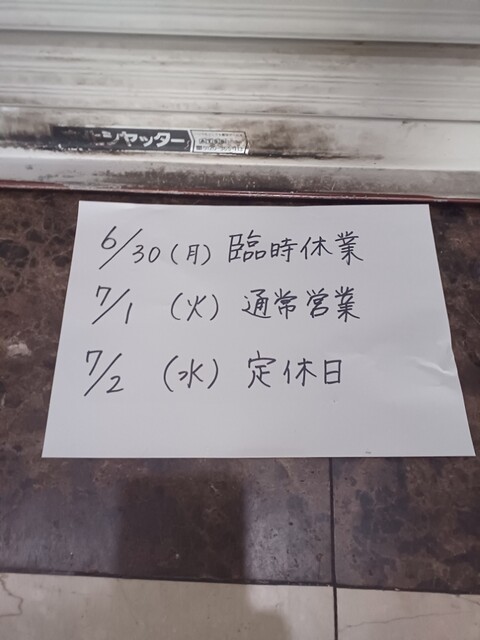 シャッター
6/30(月) 臨時休業
7/1 (火) 通常営業
7/2 (水) 定休日